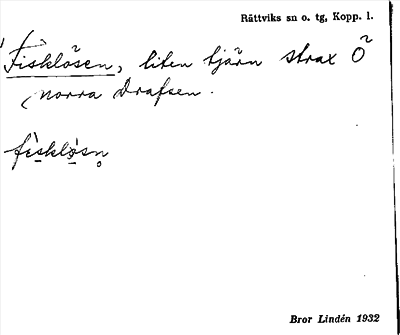 Rättviks sn o. tg, Kopp. l.
Fisklösen, liten tjärn strax Ö
norra Drafsen.
fìsklòsn̥
Bror Lindén 1932